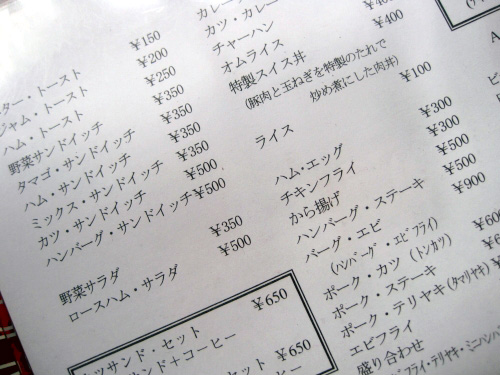 ター・トースト ¥150
ジャム・トースト ¥200
ハム・トースト ¥250
野菜サンドイッチ ¥350
タマゴ・サンドイッチ ¥350
ハム・サンドイッチ ¥350
ミックス・サンドイッチ ¥350
カツ・サンドイッチ ¥500
ハンバーグ・サンドイッチ ¥500
野菜サラダ ¥350
ロースハム・サラダ ¥500
ツサンド・セット ¥650
ンド＋コーヒー
セット ¥650
ヒー
カレー
カツ・カレー
チャーハン
オムライス
特製スイス丼 ¥400
(豚肉と玉ねぎを特製のたれで
炒め煮にした肉丼)
ライス ¥100
ハム・エッグ ¥300
チキンフライ ¥300
から揚げ ¥500
ハンバーグ・ステーキ ¥500
バーグ・エビ ¥900
(ハンバーグ・エビフライ)
ポーク・カツ (トンカツ)
ポーク・ステーキ
ポーク・テリヤキ(タマリヤキ)
エビフライ
盛り合わせ
フライ・テリヤキ・ミニハンバ